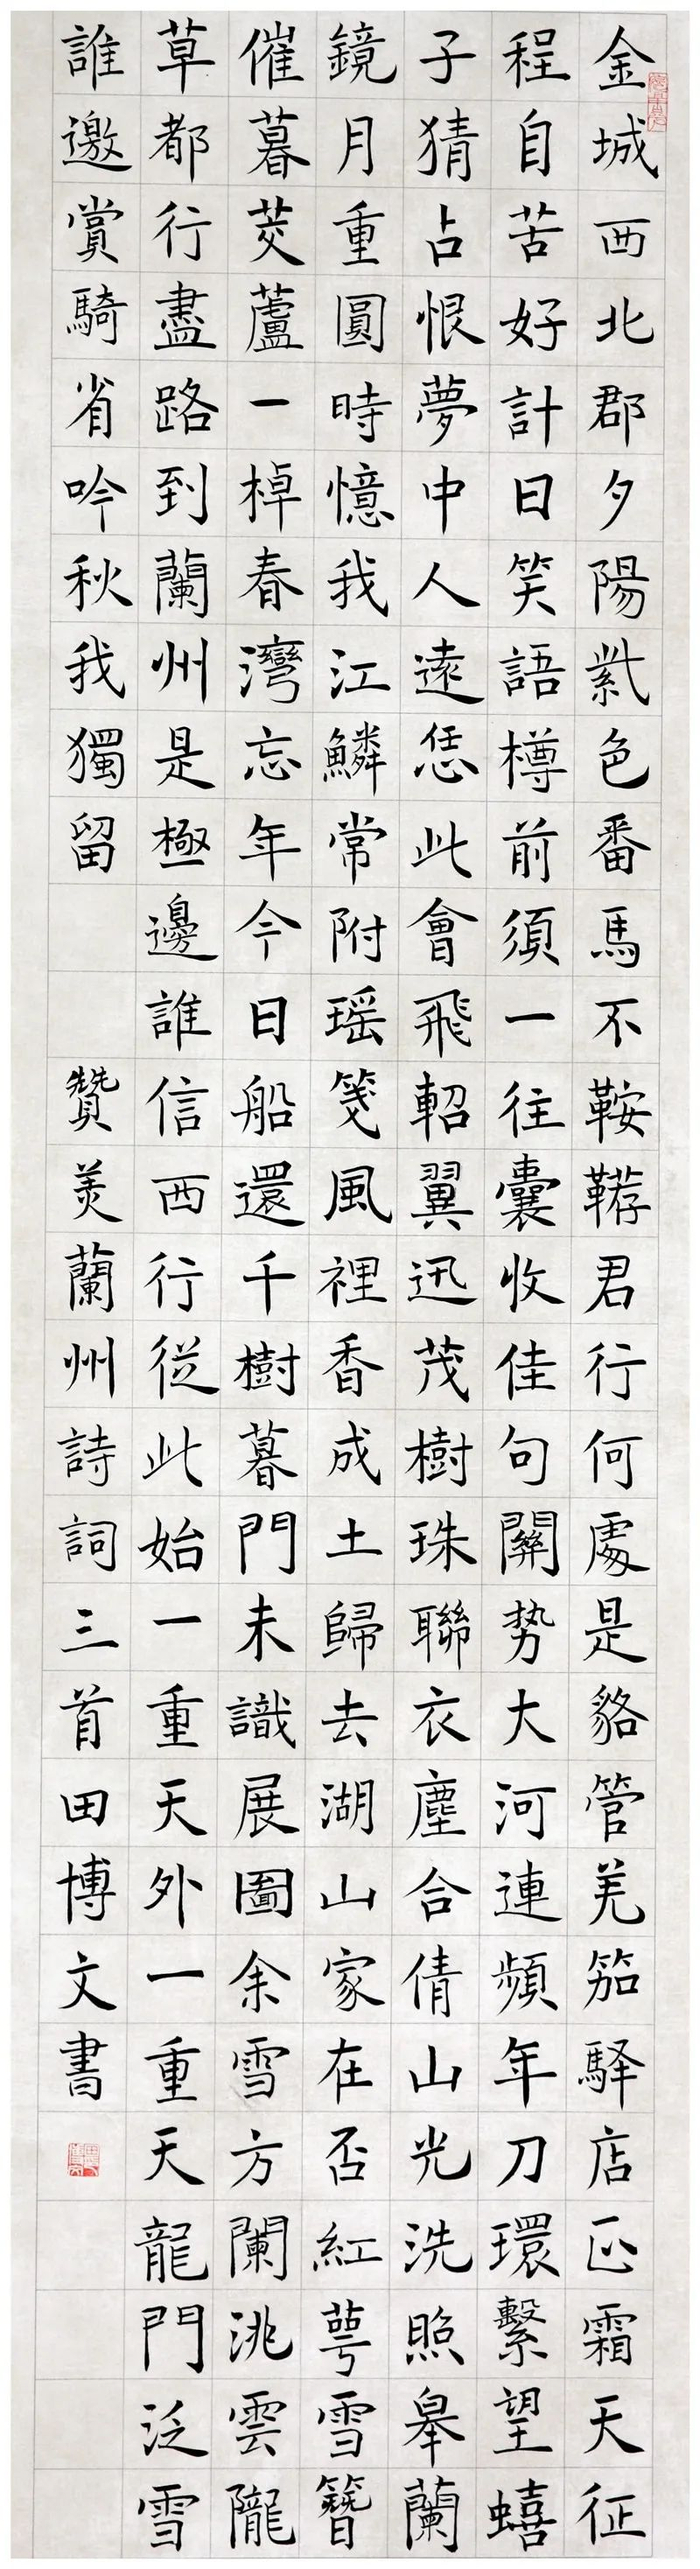 金城西北郡夕陽紫色番馬不鞍鞯君行何處是貉管羌笳驿店正霜天征
程自苦好計日笑語樽前須一往囊收佳句關势大河連頻年刀環繫望蟢
子猜占恨夢中人遠恁此會飛軺翼迅茂樹珠聯衣塵合倩山光洗照皋蘭
鏡月重圓時憶我江鱗常附瑶箋風裡香成土歸去湖山家在否紅萼雪簪
催暮茭蘆一棹春灣忘年今日船還千樹暮門未識展圖余雪方闌洮雲隴
草都行盡路到蘭州是極邊誰信西行從此始一重天外一重天龍門泛雪
誰邀賞騎省吟秋我獨留
贊美蘭州詩詞三首田博文書